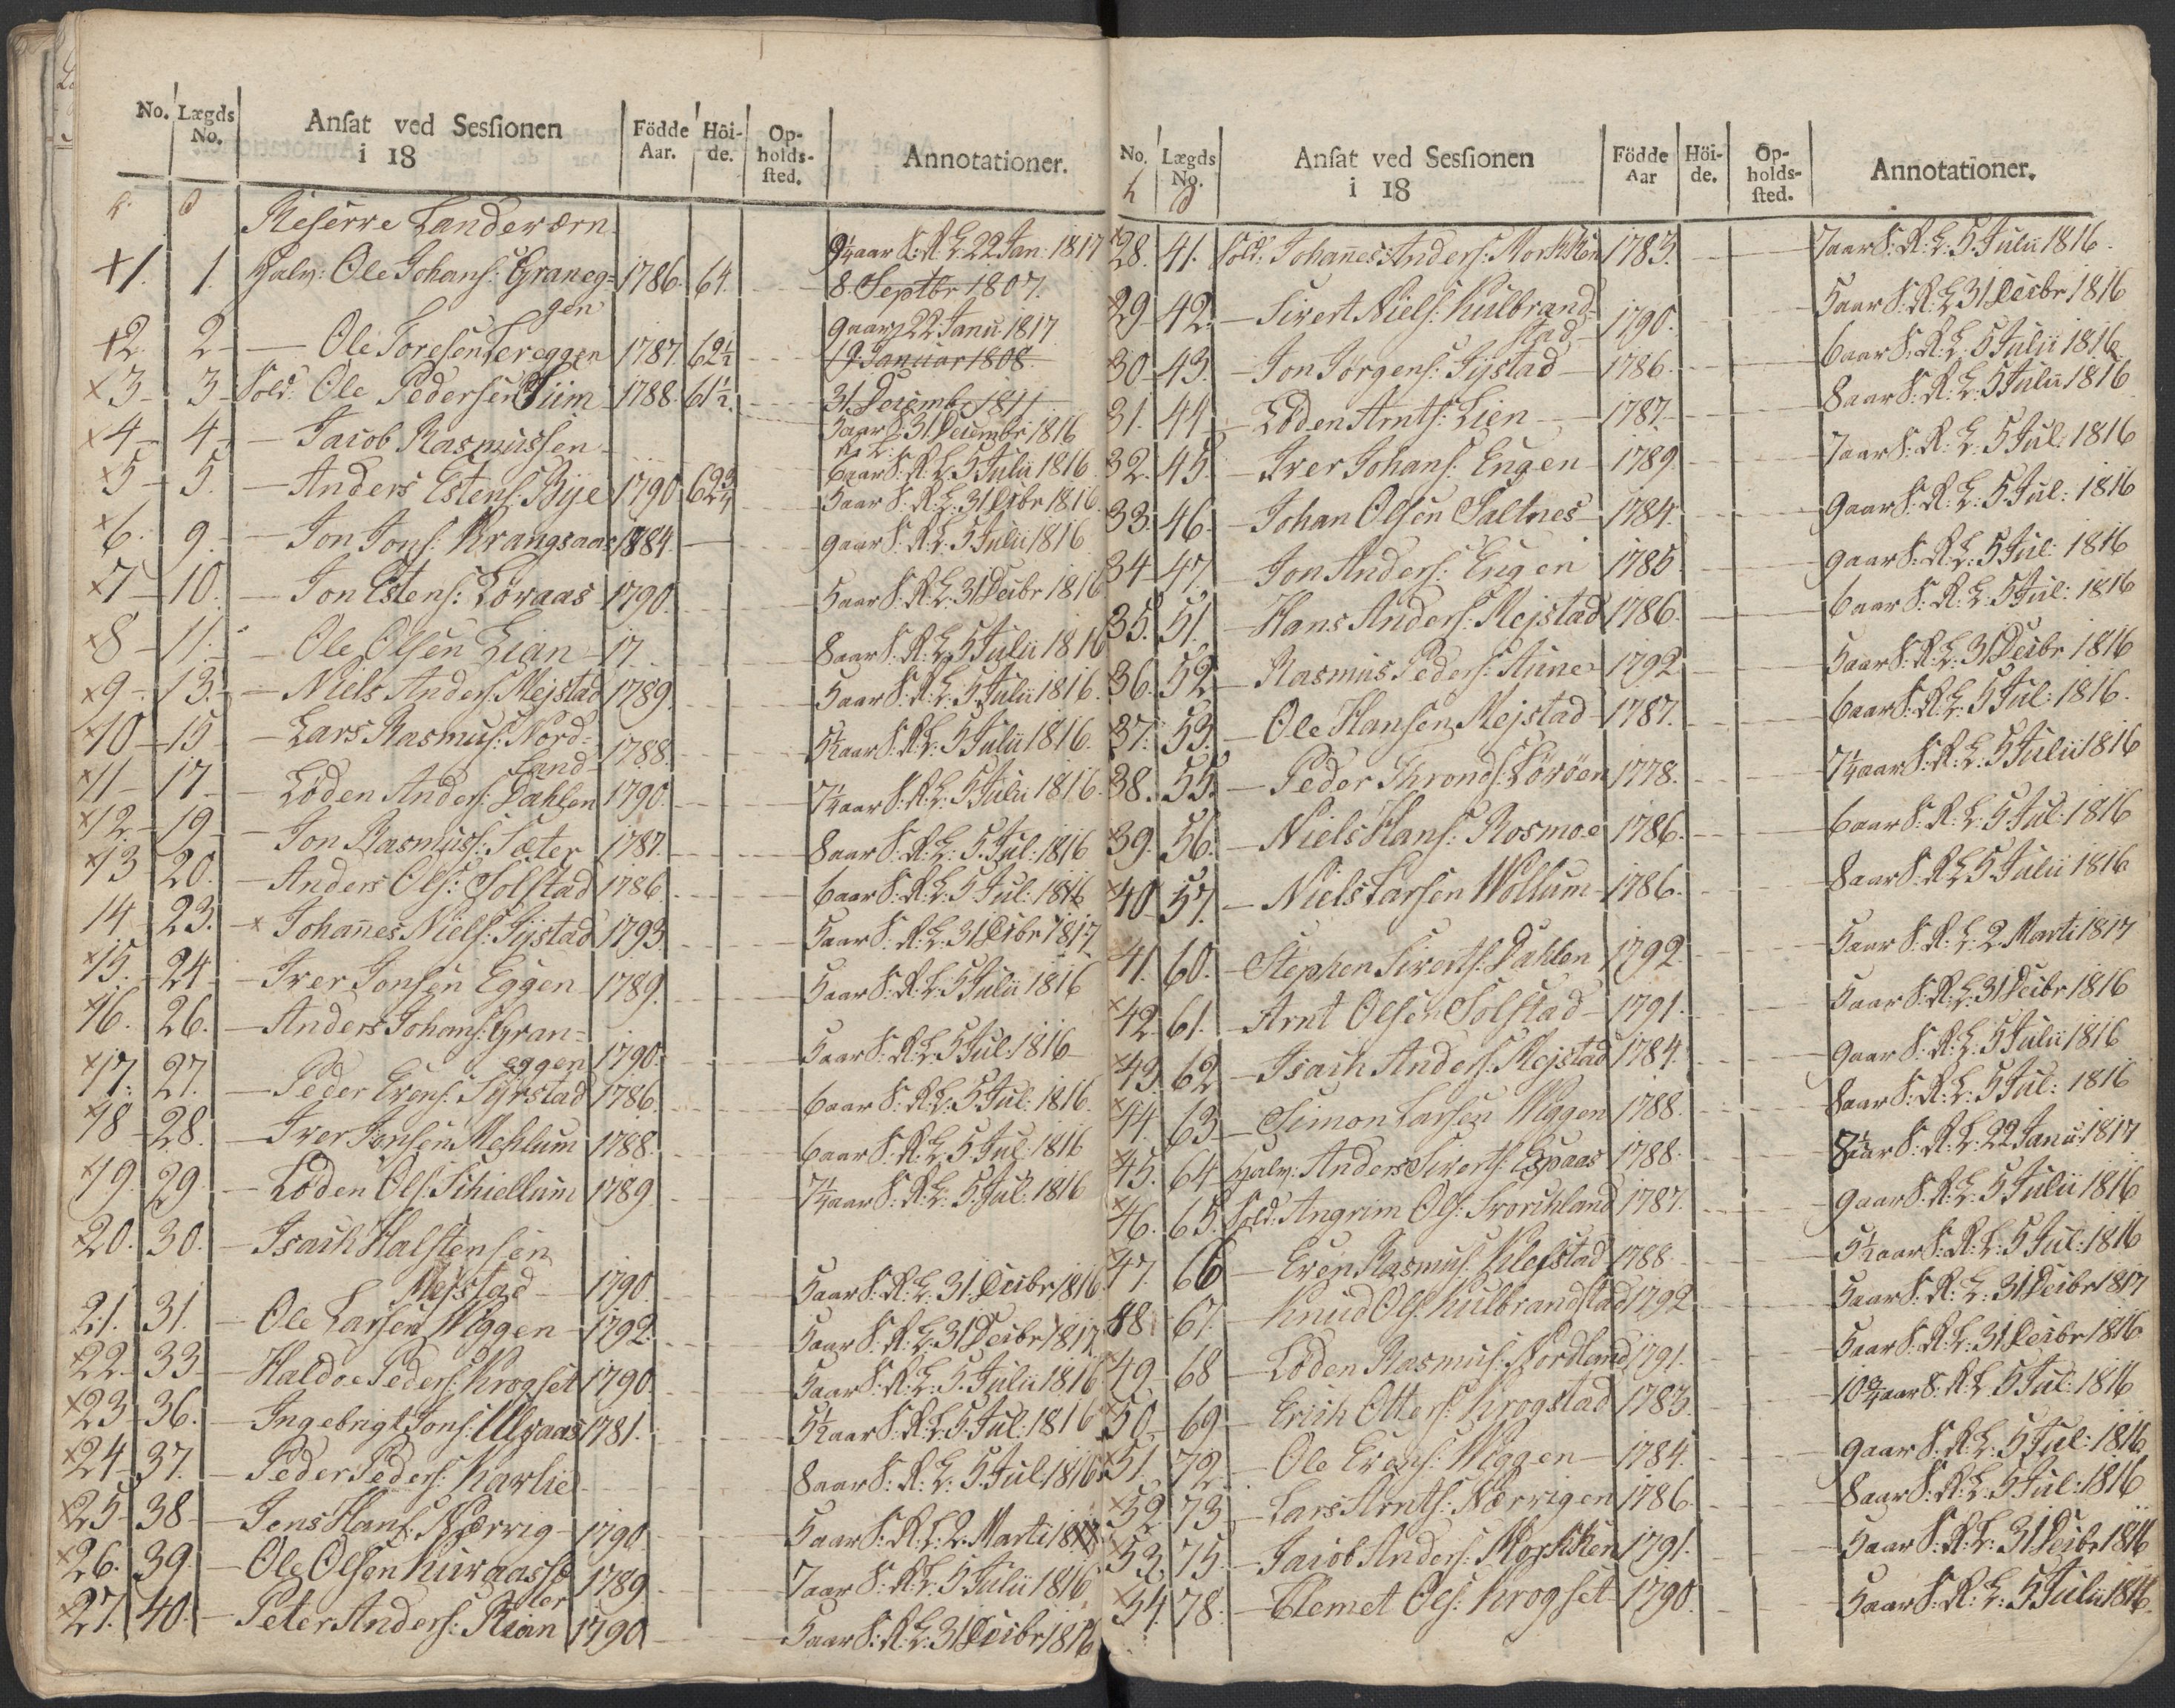 No. Lægds No. Ansat ved Sessionen i 18 Födde Aar. Höi-de. Op-holds-sted. Annotationer.
Reserve Landeværn
1. 1. Halv: Ole Johans: Graneg= 1786. 64. 9¼ aar S: R: L: 22 Jan: 1817
gen 8. Septbr 1807.
2. 2 — Ole Toresen Sereggen 1787. 62½ 9 aar 22 Janu: 1817
19 Januar 1808.
3 3 Sold: Ole Pedersen Siim 1788. 61½. 31. Decembr 1811
4 4 — Jacob Rasmussen 5 aar S: 31 Decembr 1816
R: L:
6 aar S: R: L: 5 Julii 1816
5 5. — Anders Estens: Bye 1790 62¾ 5 aar S: R: L: 31 Decbr 1816
6. 9. — Jon Jons: Krangsaas 1784. 9 aar S: R: L: 5 Julii 1816
7 10. — Jon Estens: Løraas 1790. 5 aar S: R: L: 31 Decbr 1816
8 11. — Ole Olsen Lian 17 8 aar S: R: L: 5 Julii 1816
9 13. — Niels Anders: Mejstad 1789. 5 aar S: R: L: 5 Julii 1816.
10 15 — Lars Rasmus: Nord=
land 1788. 5½ aar S: R: L: 5 Julii 1816.
11 17 — Loden Anders: Dahlen 1790. 7¼ aar S: R: L: 5 Julii 1816.
12. 19 — Jon Rasmuss: Sæter 1787. 8 aar S: R: L: 5. Jul: 1816
13 20. — Anders Ols: Solstad 1786. 6 aar S: R: L: 5 Jul: 1816
14 23. Johanes Niels: Sÿstad 1793. 5 aar S: R: L: 31 Decbr 1817
15. 24 — Iver Jonsen Eggen 1789. 5 aar S: R: L: 5 Julii 1816
16. 26. — Anders Johans: Gran=
eggen 1790. 5 aar S: R: L: 5 Jul: 1816
17. 27. — Peder Evens: Syrstad 1786. 6 aar S: R: L: 5. Jul: 1816.
18 28. — Iver Jonsen Mehlum 1788. 6 aar S: R: L: 5 Jul: 1816
19. 29. — Loden Ols: Schiellum 1789 7¼ aar S: R: L: 5. Jul: 1816
20. 30. — Isach Halstensen
Mejstad 1790. 5 aar S: R: L: 31 Decbr 1816
21. 31. — Ole Larsen Wiggen 1792. 5 aar S: R: L: 31 Decbr 1817
22 33 — Haldoe Peders: Krogset 1790. 5 aar S: R: L: 5. Julii 1816
23 36. — Ingebrigt Jons: Ulsaas 1781. 5½ aar S: R: L: 5. Jul: 1816
24 37. — Peder Peders: Karlie 8 aar S: R: L: 5. Jul: 1816
25 38 — Jens Hans: Nærvig 1790. 5 aar S: R: L: 2. Marti 1817
26. 39. — Ole Olsen Kuraassæ
ter 1789 7 aar S: R: L: 5 Julii 1816
27. 40. — Peter Anders: Rian 1790 5 aar S: R: L: 31 Decbr 1816
No. Lægds No. Ansat ved Sessionen i 18 Födde Aar Höi-de. Op-holds-sted. Annotationer.
28. 41. Sold: Johanes Anders: Korskken 1783. 7 aar S: R: L: 5 Julii 1816.
29 42. — Sivert Niels: Kulbrand=
stad 1790. 5 aar S: R: L: 31 Decbr 1816
30 43. — Jon Jørgens: Sÿstad 1786. 6 aar S: R: L: 5 Julii 1816.
31. 44 — Loden Arnts: Lien 1787. 8 aar S: R: L: 5 Julii 1816
32. 45. — Iver Johans: Engen 1789. 7 aar S: R: L: 5 Jul: 1816
33. 46. — Johan Olsen Saltnes 1784. 9 aar S: R: L: 5 Jul: 1816
34 47. — Jon Anders: Engen 1785 9 aar S: R: L: 5 Jul: 1816
35. 51. — Hans Anders: Mejstad 1786. 6 aar S: R: L: 5 Jul: 1816
36. 52 — Rasmus Peders: Aune 1792 5 aar S: R: L: 31 Decbr 1816
37. 53. — Ole Hansen Mejstad 1787. 6 aar S: R: L: 5 Jul: 1816.
38. 55. — Peder Thronds: Lørøen 1778. 7¼ aar S: R: L: 5 Julii 1816
39. 56. — Niels Hans: Rosmoe 1786. 6 aar S: R: L: 5 Jul: 1816
40 57. — Niels Larsen Wollum 1786. 8 aar S: R: L: 5 Julii 1816
41. 60. — Stephen Siverts: Dahlen 1792. 5 aar S: R: L: 2. Marti 1817
42 61. — Arnt Olsen Solstad 1791. 5 aar S: R: L: 31 Decbr 1816
43. 62 — Isach Anders: Mejstad 1784. 9 aar S: R: L: 5 Julii 1816
44. 63 — Simon Larsen Wiggen 1788. 8 aar S: R: L: 5 Jul: 1816
45. 64 Halv: Anders Siverts: Espaas 1788. 8½ aar S: R: L: 22 Janu: 1817
46. 65. Sold: Angrim Ols: Svorchland 1787. 9 aar S: R: L: 5 Julii 1816
47. 66 — Even Rasmus: Klefstad 1788. 5½ aar S: R: L: 5 Jul: 1816
48 67. — Knud Ols: Kulbrandstad 1792 5 aar S: R: L: 31 Decbr 1817
49 68 — Loden Rasmus: Nordland 1791. 5 aar S: R: L: 31 Decbr 1816
50. 69 — Erich Otters: Krogstad 1783. 10¾ aar S: R: L: 5 Jul: 1816
51. 72 — Ole Evens: Wiggen 1784. 9 aar S: R: L: 5 Jul: 1816
52. 73 — Lars Arnts: Nærvigen 1786. 8 aar S: R: L: 5 Jul: 1816
53. 75. — Jacob Anders: Korskken 1791. 5 aar S: R: L: 31 Decbr 1816
54. 78. — Clemet Ols: Krogset 1790. 5 aar S: R: L: 5 Julii 1816.